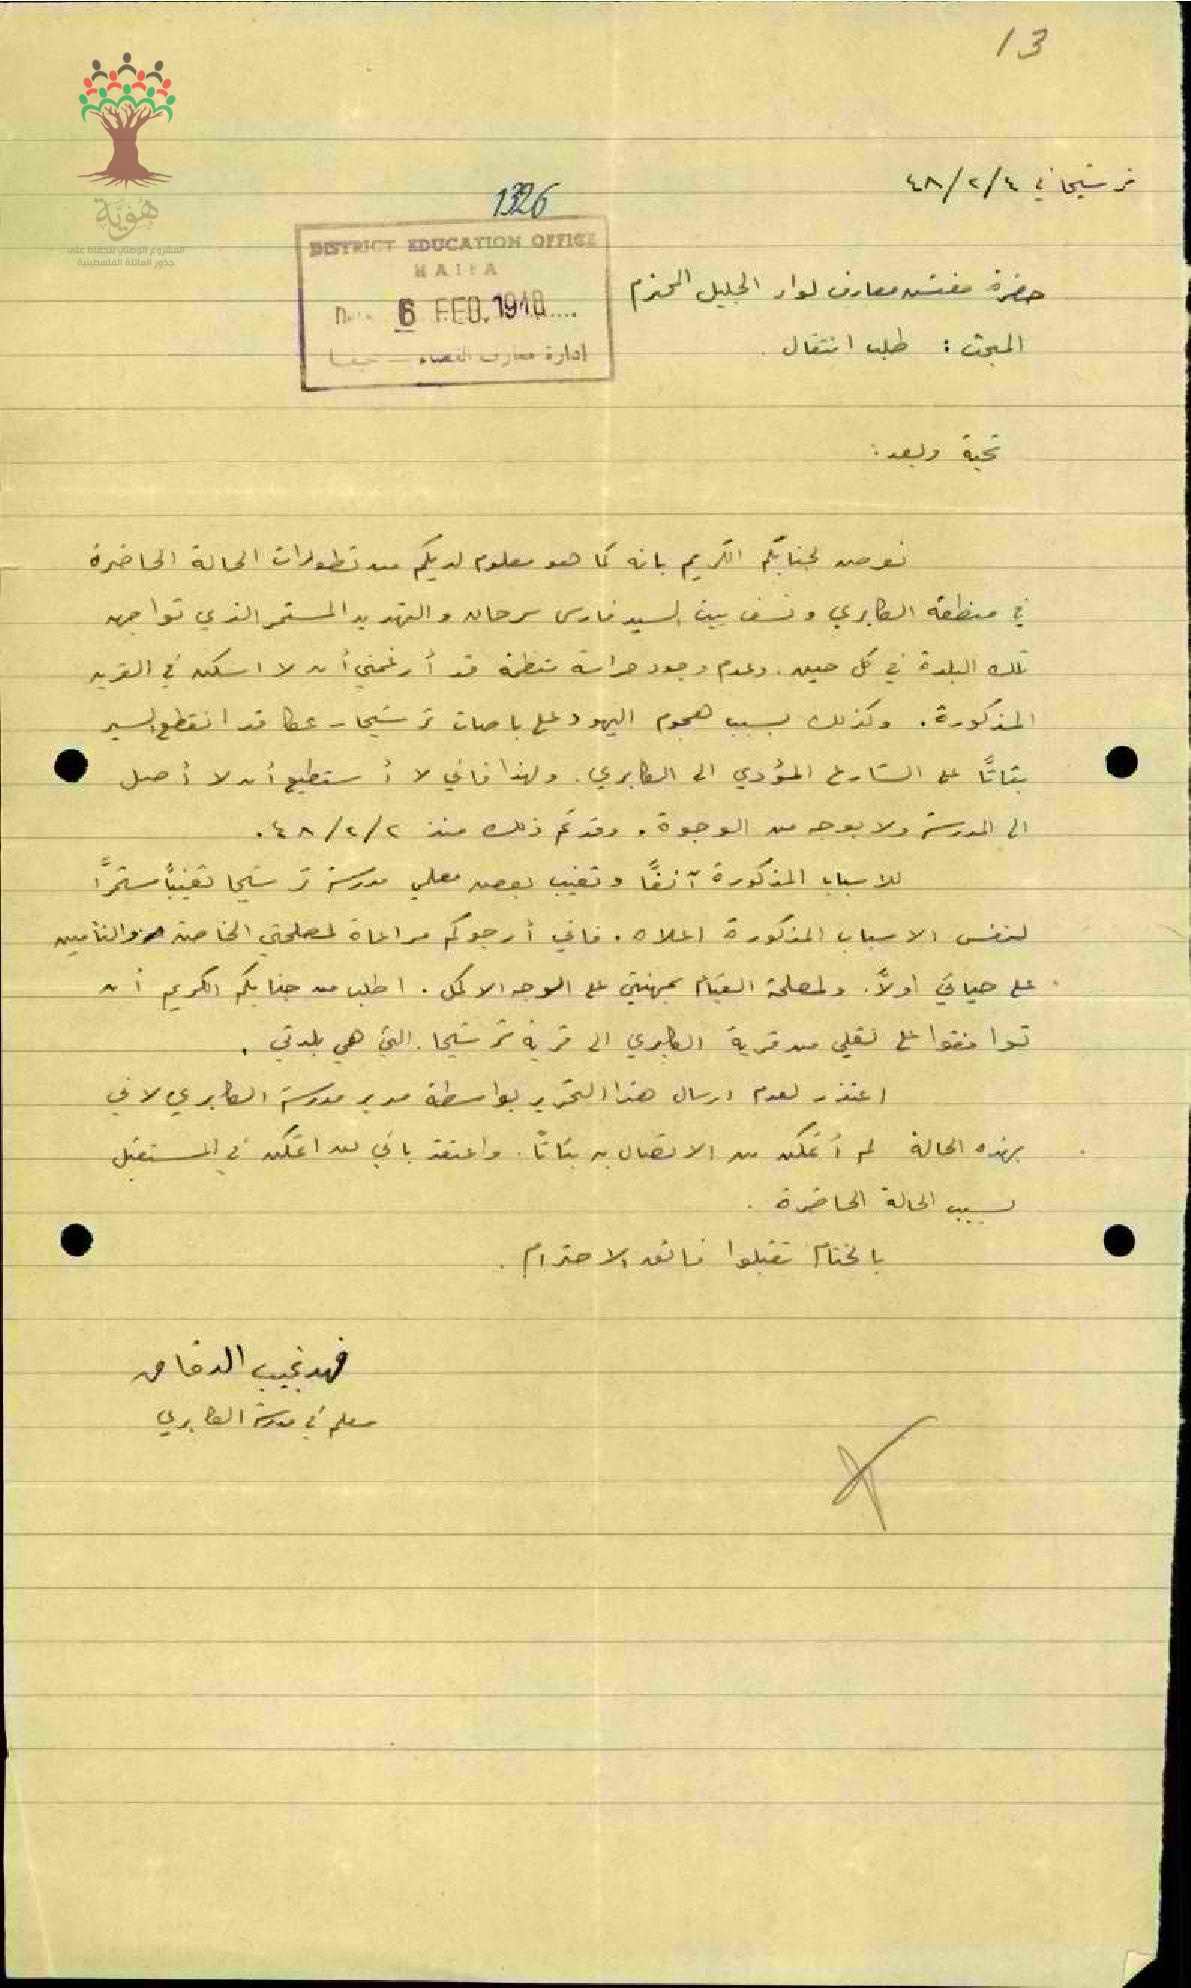 13
ترشيحا في ٤/٢/٤٨
1326
DISTRICT EDUCATION OFFICE
HAIFA
Date 6 FEB. 1948
إدارة معارف القضاء — حيفا
هُوِيَّة
المشروع الوطني للحفاظ على
جذور العائلة الفلسطينية
حضرة مفتش معارف لواء الجليل المحترم
المبحث : طلب انتقال .
تحية وبعد :
نعرض لجنابكم الكريم بانه كما هو معلوم لديكم من تطورات الحالة الحاضرة
في منطقة الكابري ونسف بيت السيد فارس سرحان والتهديد المستمر الذي تواجهه
تلك البلدة في كل حين . وعدم وجود حراسة منظمة قد أرغمني أن لا اسكن في القرية
المذكورة . وكذلك بسبب هجوم اليهود على باصات ترشيحا عكا قد انقطع السير
بتاتاً على الشارع المؤدي الى الكابري . ولهذا فاني لا أستطيع أن لا أصل
الى المدرسة ولا بوجه من الوجوة . وقد تم ذلك منذ ٢/٢/٤٨ .
للاسباب المذكورة آنفاً وتغيب بعض معلمي مدرسة ترشيحا تغيباً مستمراً
لنفس الاسباب المذكورة اعلاه . فاني أرجوكم مراعاة لمصلحتي الخاصة والتأمين
على حياتي اولاً . ولمصلحة القيام بمهنتي على الوجه الاكمل . اطلب من جنابكم الكريم أن
توافقوا على نقلي من قرية الكابري الى قرية ترشيحا . التي هي بلدتي .
اعتذر لعدم ارسال هذا التحرير بواسطة مدير مدرسة الكابري لاني
بهذه الحالة لم أتمكن من الاتصال به بتاتاً . واعتقد باني لن اتمكن في المستقبل
بسبب الحالة الحاضرة .
بالختام تقبلوا فائق الاحترام .
فهد نجيب الدقاق
معلم في مدرسة الكابري